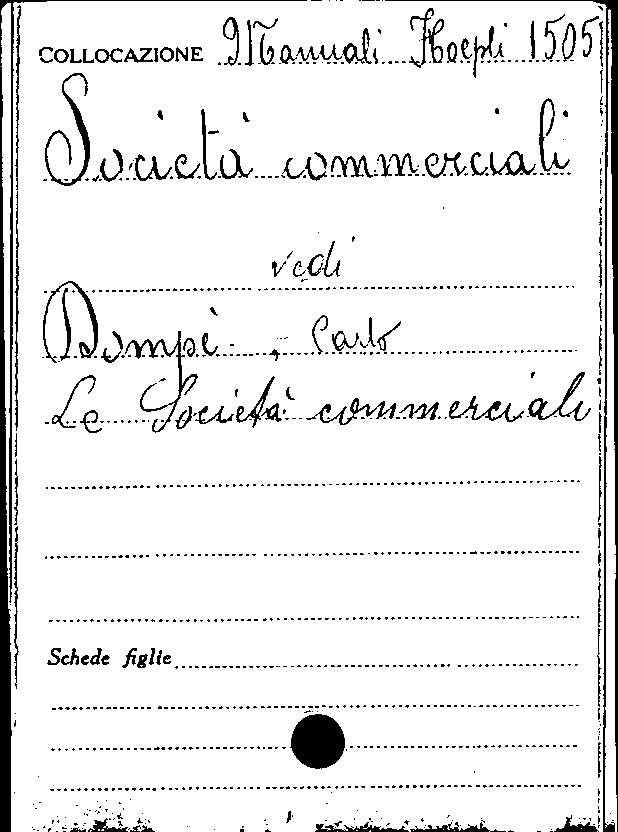 COLLOCAZIONE Manuali Hoepli 1505
Società commerciali
vedi
Dompè, Carlo
Le Società commerciali
Schede figlie